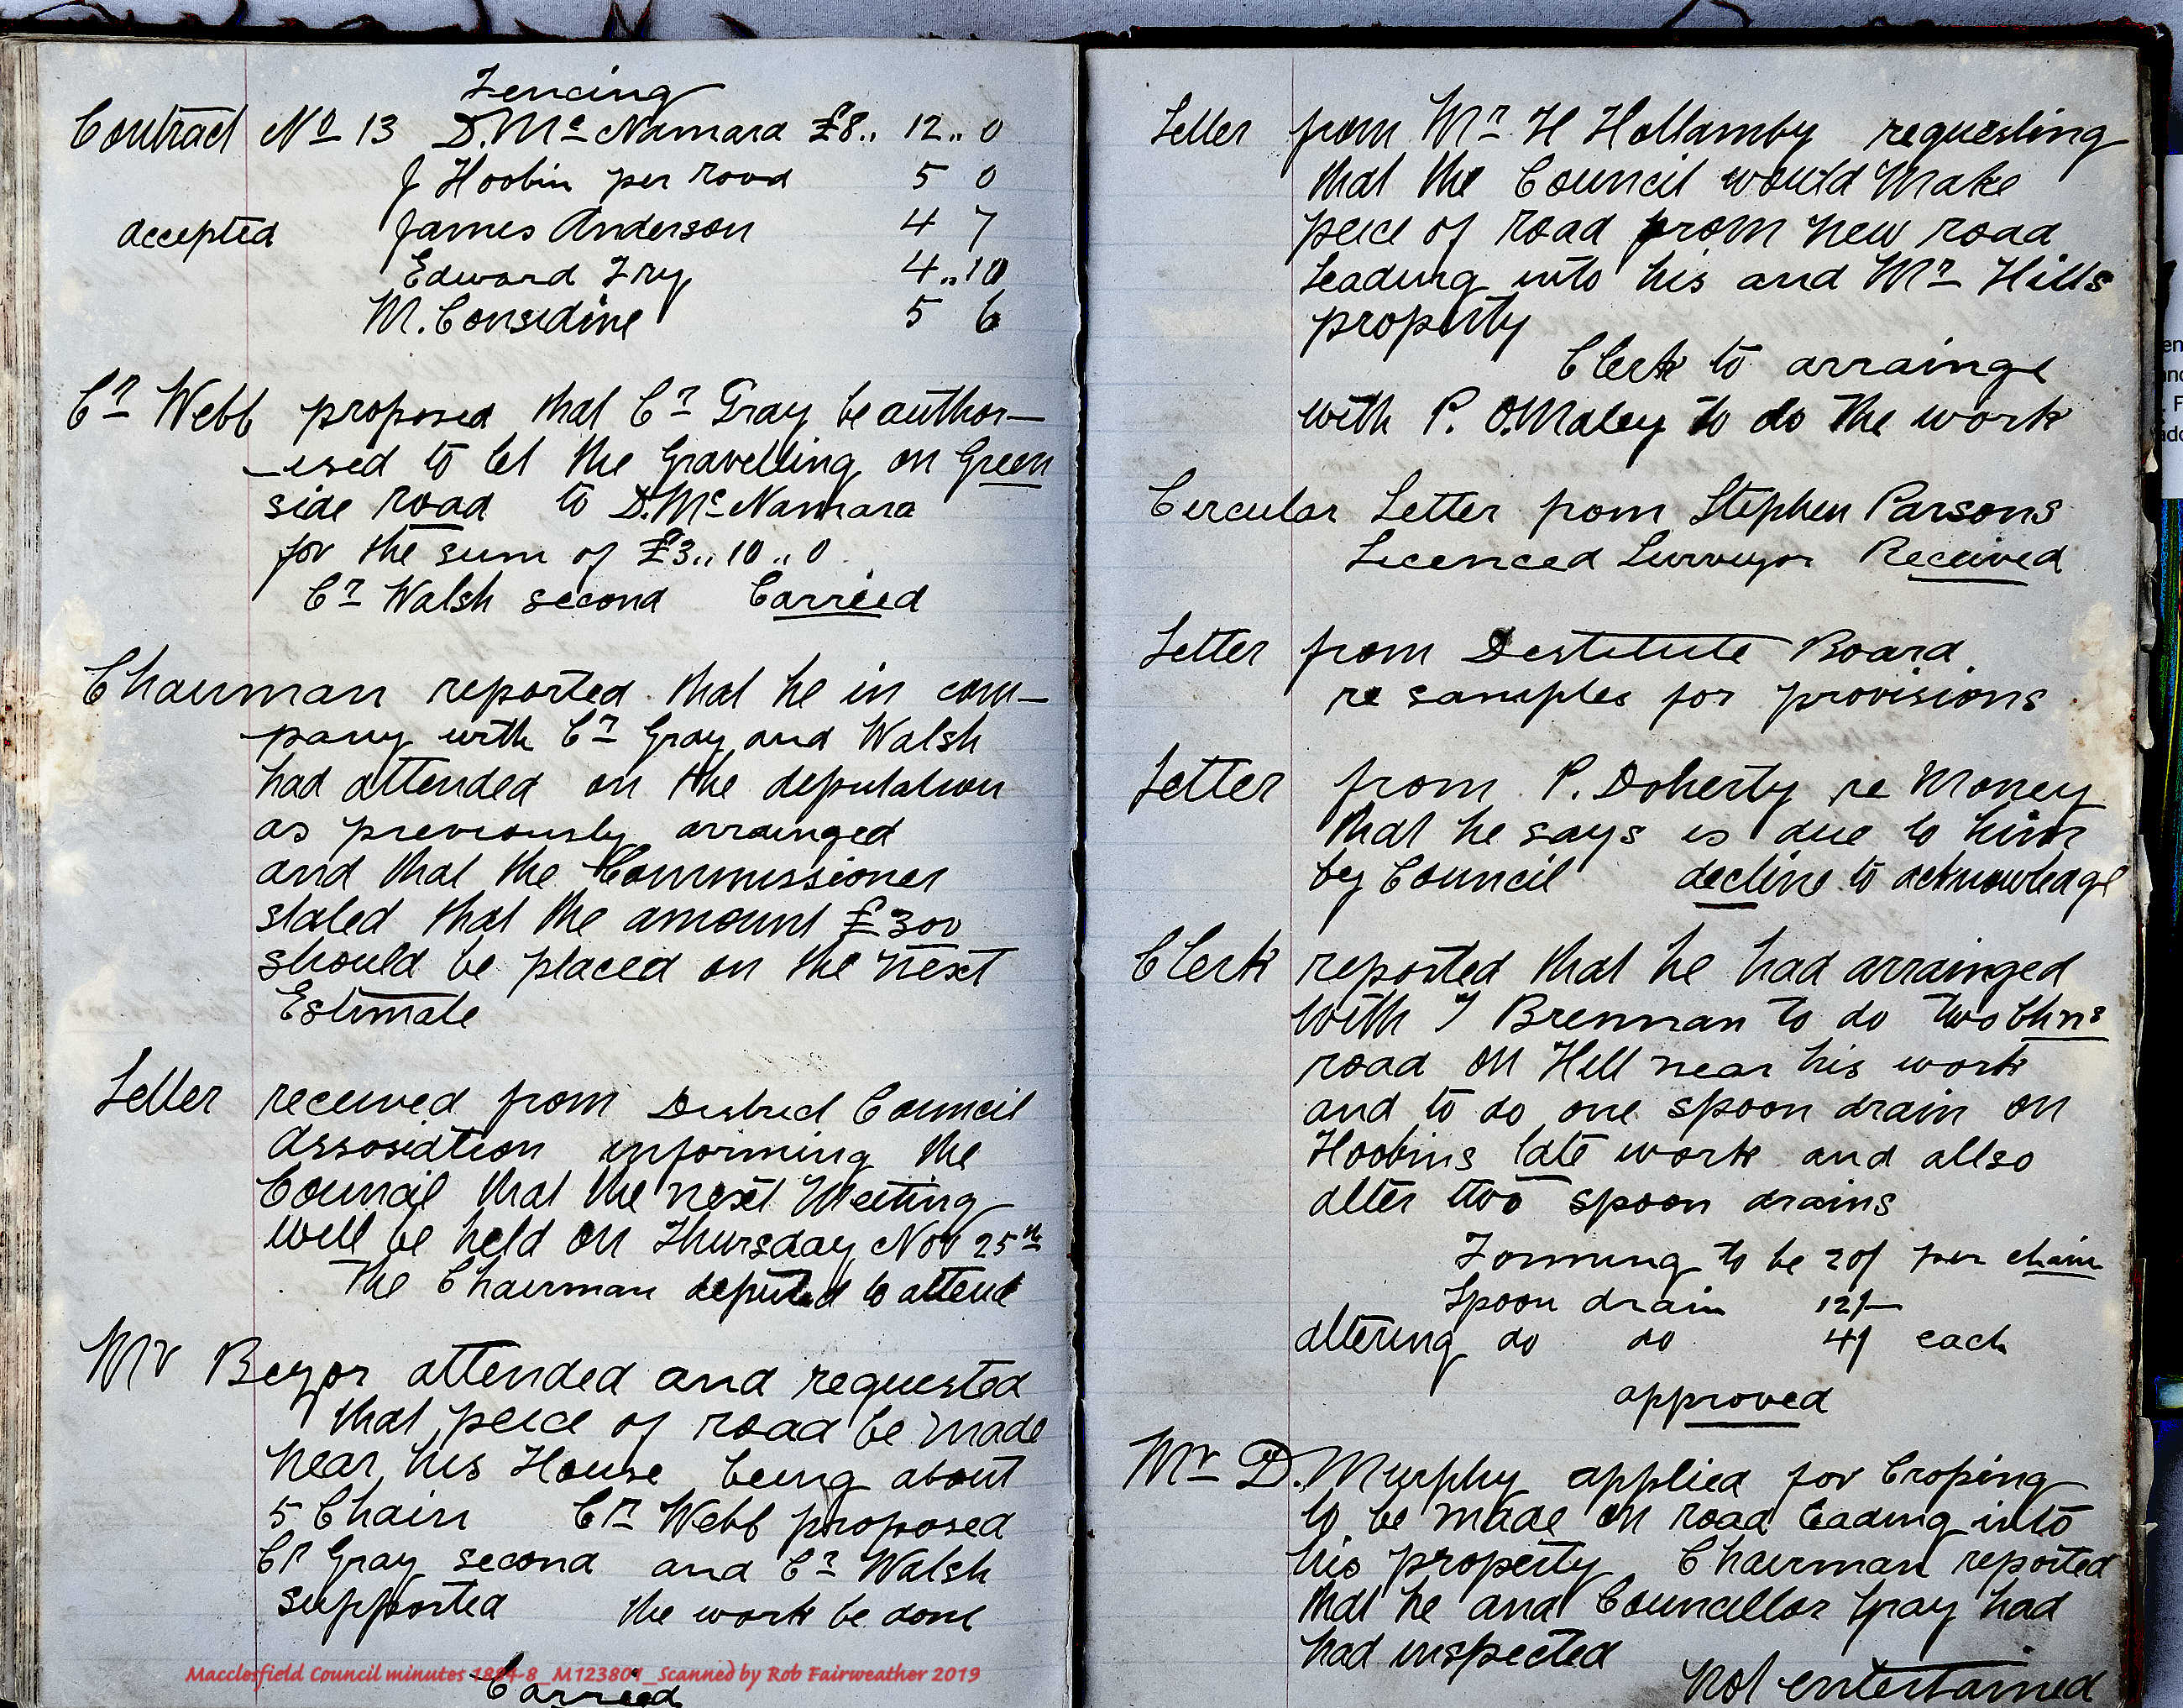 Fencing
Contract No 13 D. Mc Namara £8.. 12.. 0
J Hoobin per rood 5 0
accepted James Anderson 4 7
Edward Fry 4..10
M. Considine 5 6
Cr Webb proposed that Cr Gray be author-
-ised to let the Gravelling on Green
side road to D. Mc Namara
for the sum of £3.. 10.. 0
Cr Walsh second Carried
Chairman reported that he in com-
pany with Cr Gray and Walsh
had attended on the deputation
as previously arrainged
and that the Commissioner
stated that the amount £300
should be placed on the next
Estimate
Letter received from District Council
Assosiation informing the
Council that the next Meeting
will be held on Thursday Nov 25th
The Chairman deputed to attend
Mr Beyor attended and requested
that peice of road be made
near his House being about
5 Chain Cr Webb proposed
Cr Gray second and Cr Walsh
supported the work be done
Carried
Macclesfield Council minutes 1884-8_M123801_Scanned by Rob Fairweather 2019
Letter from Mr H Hollamby requesting
that the Council would make
peice of road from new road
leading into his and Mr Hills
property
Clerk to arrainge
with P. O.Maley to do the work
Circular Letter from Stephen Parsons
Licenced Surveyor Received
Letter from Destitute Board.
re samples for provisions
Letter from P. Doherty re Money
that he says is due to him
by Council decline to acknowledge
Clerk reported that he had arrainged
with J Brennan to do two Chns
road on Hill near his work
and to do one spoon drain on
Hoobins late work and allso
alter two spoon drains
Forming to be 20/ per chain
Spoon drain 12/-
altering do do 4/ each
approved
Mr D. Murphy applied for Croping
to be made on road leading into
his property Chairman reported
that he and Councellor Gray had
had inspected
Not entertained